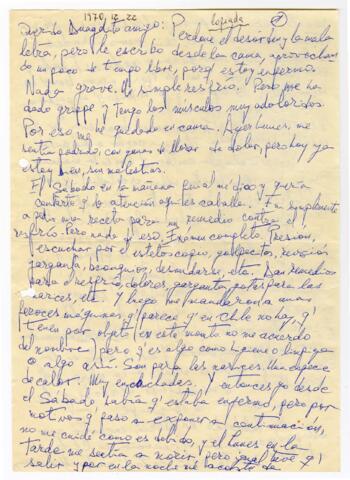 1970, 12, 22
copiada
Querido amigo: Perdone el desorden y la mala
letra, pero le escribo desde la cama, aprovechan
do un poco de tiempo libre, porq' estoy enfermo.
Nada grave. Un simple resfrío. Pero me ha
dado grippe y tengo los músculos muy adoloridos.
Por eso me he quedado en cama. Ayer lunes, me
sentía podrido, con ganas de llorar de dolor, pero hoy ya
estoy bien, sin molestias.
El Sábado en la mañana fui al médico y quería
contarte q' la atención aquí es caballa. simplemente
a pedir una receta para un remedio contra el
resfrío. Pero nada de eso. Exámen completo. Presión,
escuchar por el estetoscopio, golpecitos, revisión
garganta, bronquios, desnudarse, etc. Dan remedios
para el resfrío, dolores, garganta, gotas para las
narices, etc. Y luego me mandaron a unas
feroces máquinas q' parece q' en Chile no hay, q'
tienen por objeto (en este momento no me acuerdo
del nombre) pero q' es algo como higiene o limpieza
o algo así. Son para las narices. Una especie
de calor. Muy encachadas. Y entonces yo desde
el Sábado sabía q' estaba enfermo, pero por
motivos q' paso a exponer a continuación,
no me cuidé como es debido, y el lunes en la
tarde me sentía a morir, pero igual tuve q'
salir y por en la noche me acosté